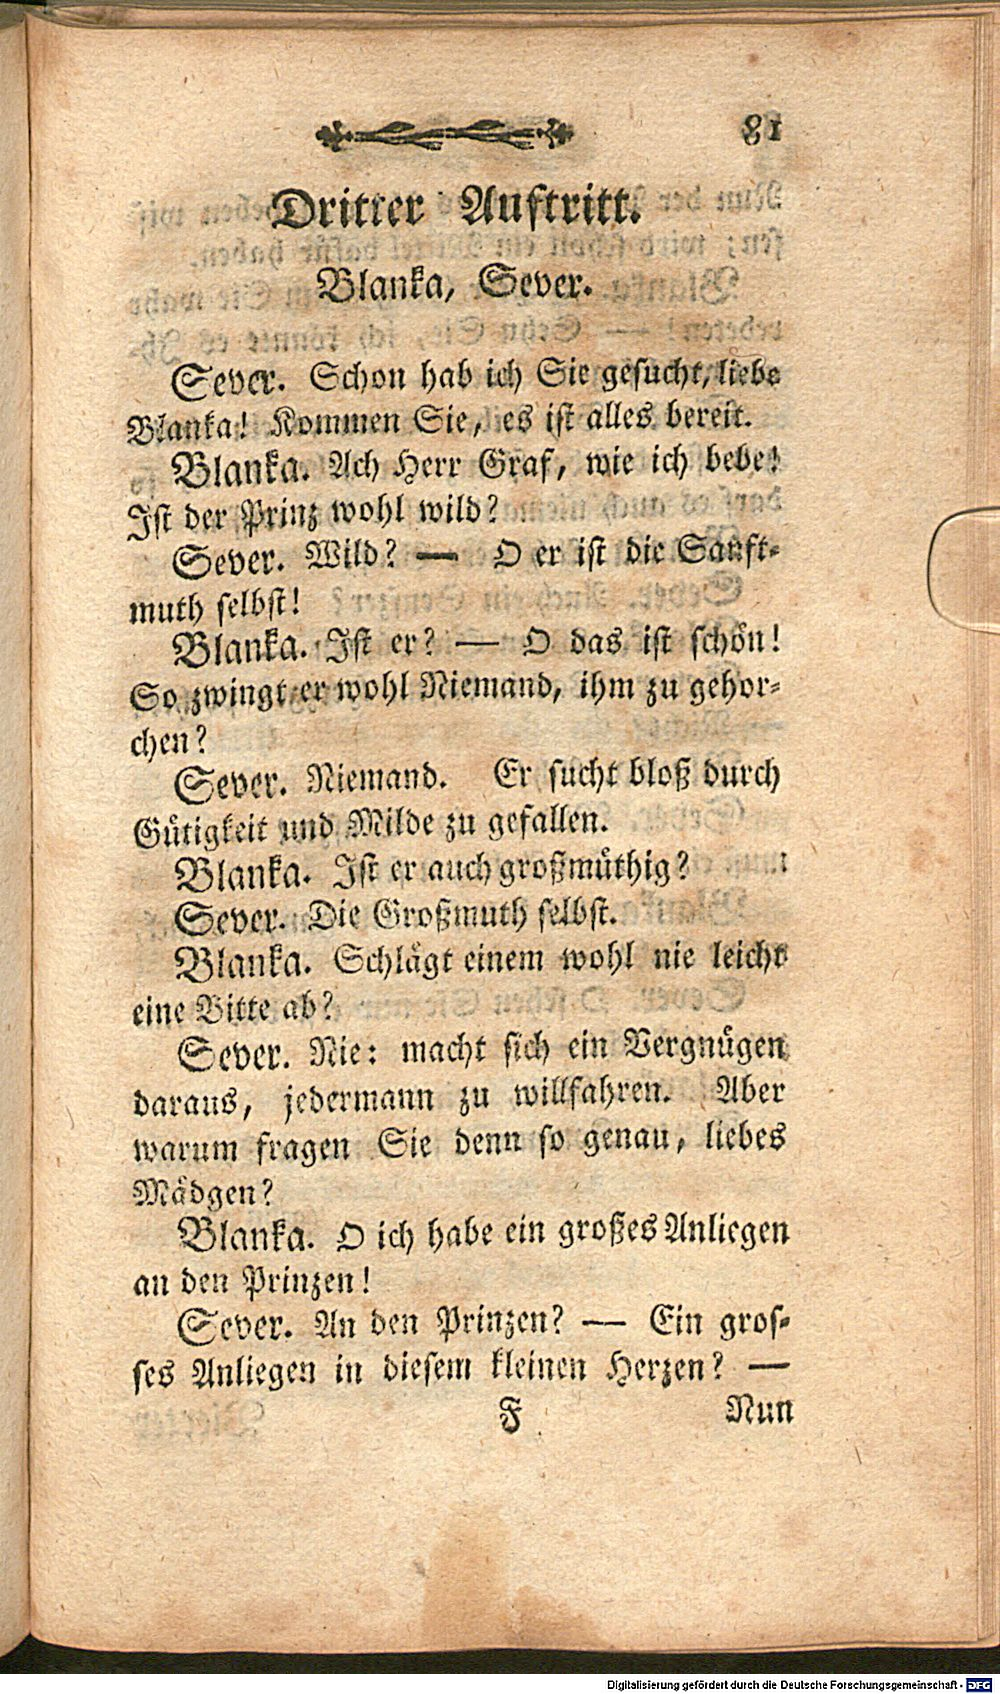 81
Dritter Auftritt.
Blanka, Sever.
Sever. Schon hab ich Sie gesucht, liebe
Blanka! Kommen Sie, es ist alles bereit.
Blanka. Ach Herr Graf, wie ich bebe!
Ist der Prinz wohl wild?
Sever. Wild? — O er ist die Sanft-
muth selbst!
Blanka. Ist er? — O das ist schön!
So zwingt er wohl Niemand, ihm zu gehor-
chen?
Sever. Niemand. Er sucht bloß durch
Gütigkeit und Milde zu gefallen.
Blanka. Ist er auch großmüthig?
Sever. Die Großmuth selbst.
Blanka. Schlägt einem wohl nie leicht
eine Bitte ab?
Sever. Nie: macht sich ein Vergnügen
daraus, jedermann zu willfahren. Aber
warum fragen Sie denn so genau, liebes
Mädgen?
Blanka. O ich habe ein großes Anliegen
an den Prinzen!
Sever. An den Prinzen? — Ein gros-
ses Anliegen in diesem kleinen Herzen? —
F Nun
Digitalisierung gefördert durch die Deutsche Forschungsgemeinschaft - DFG